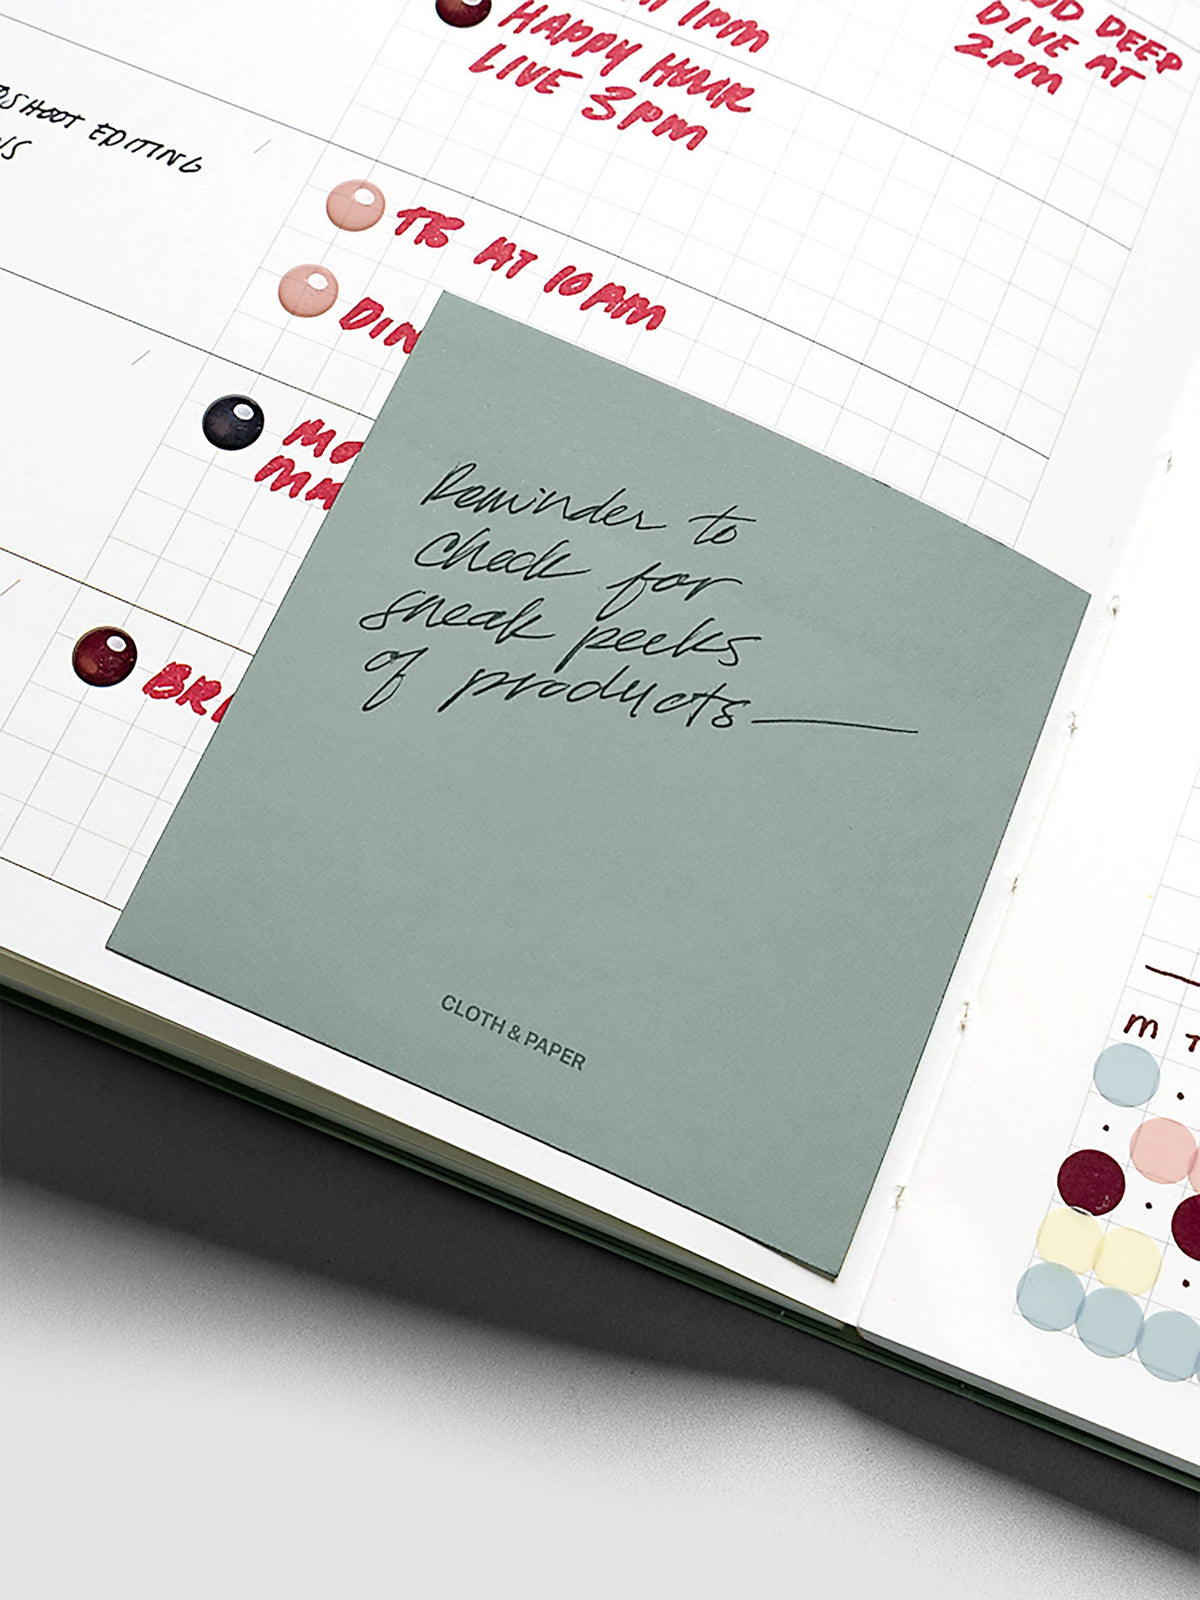 1PM
HAPPY HOUR
LIVE 3PM
DEEP
DIVE AT
2PM
EDITING
TB AT 10AM
Reminder to
check for
sneak peeks
of products
CLOTH & PAPER
M T